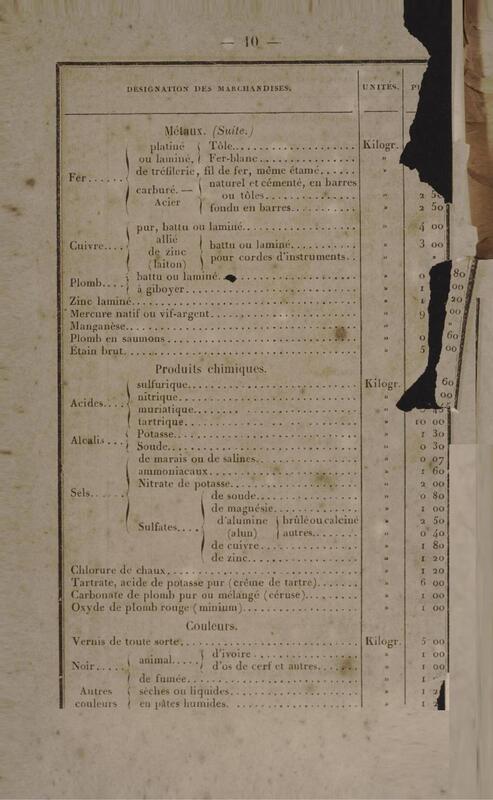 — 10 —
DÉSIGNATION DES MARCHANDISES. UNITÉS.
Métaux. (Suite.)
Fer...... platiné ou laminé, Tôle.................... Kilogr.
Fer-blanc................ "
de tréfilerie, fil de fer, même étamé...... "
carburé. — Acier naturel et cémenté, en barres
ou tôles............... " 2
fondu en barres........... " 2 50
Cuivre.... pur, battu ou laminé.................... " 4 00
allié de zinc (laiton) battu ou laminé........... " 3 00
pour cordes d'instruments.. "
Plomb.... battu ou laminé...................... " 0 80
à giboyer............................ " 1 00
Zinc laminé.................................. " 1 20
Mercure natif ou vif-argent......................... " 9 00
Manganèse.................................. " "
Plomb en saumons............................. " 0 60
Étain brut.................................. " 5 00
Produits chimiques.
Acides.... sulfurique............................ Kilogr. 60
nitrique............................. " 00
muriatique.......................... "
tartrique............................ " 10 00
Alcalis... Potasse.............................. " 1 30
Soude............................... " 0 30
Sels..... de marais ou de salines................. " 0 07
ammoniacaux........................ " 1 60
Nitrate de potasse..................... " 2 00
Sulfates.... de soude................ " 0 80
de magnésie.............. " 1 00
d'alumine (alun) brûlé ou calciné " 2 50
autres....... " 0 40
de cuivre................ " 1 80
de zinc.................. " 1 20
Chlorure de chaux............................ " 1 20
Tartrate, acide de potasse pur (crême de tartre)....... " 6 00
Carbonate de plomb pur ou mélangé (céruse)........ " 1 00
Oxyde de plomb rouge (minium).................. " 1 00
Couleurs.
Vernis de toute sorte............................ Kilogr. 5 00
Noir.... animal.... d'ivoire.................. " 1 00
d'os de cerf et autres....... " 1 00
de fumée............................ " 1
Autres couleurs sèches ou liquides..................... " 1
en pâtes humides...................... " 1